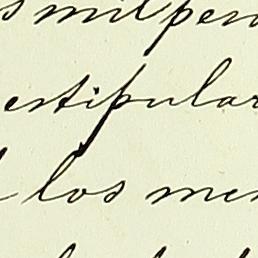 s mil peso
estipular
los men